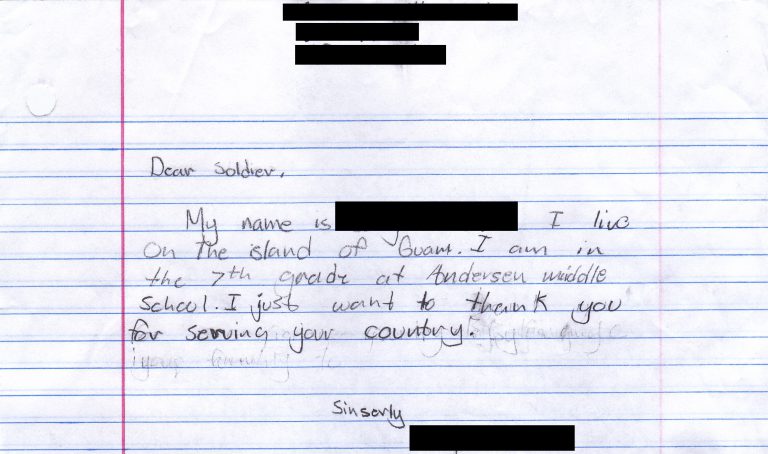 Dear Soldier,
My name is I live
On The island of Guam. I am in
the 7th grade at Andersen middle
School. I just want to thank you
for serving your country.
Sinserly